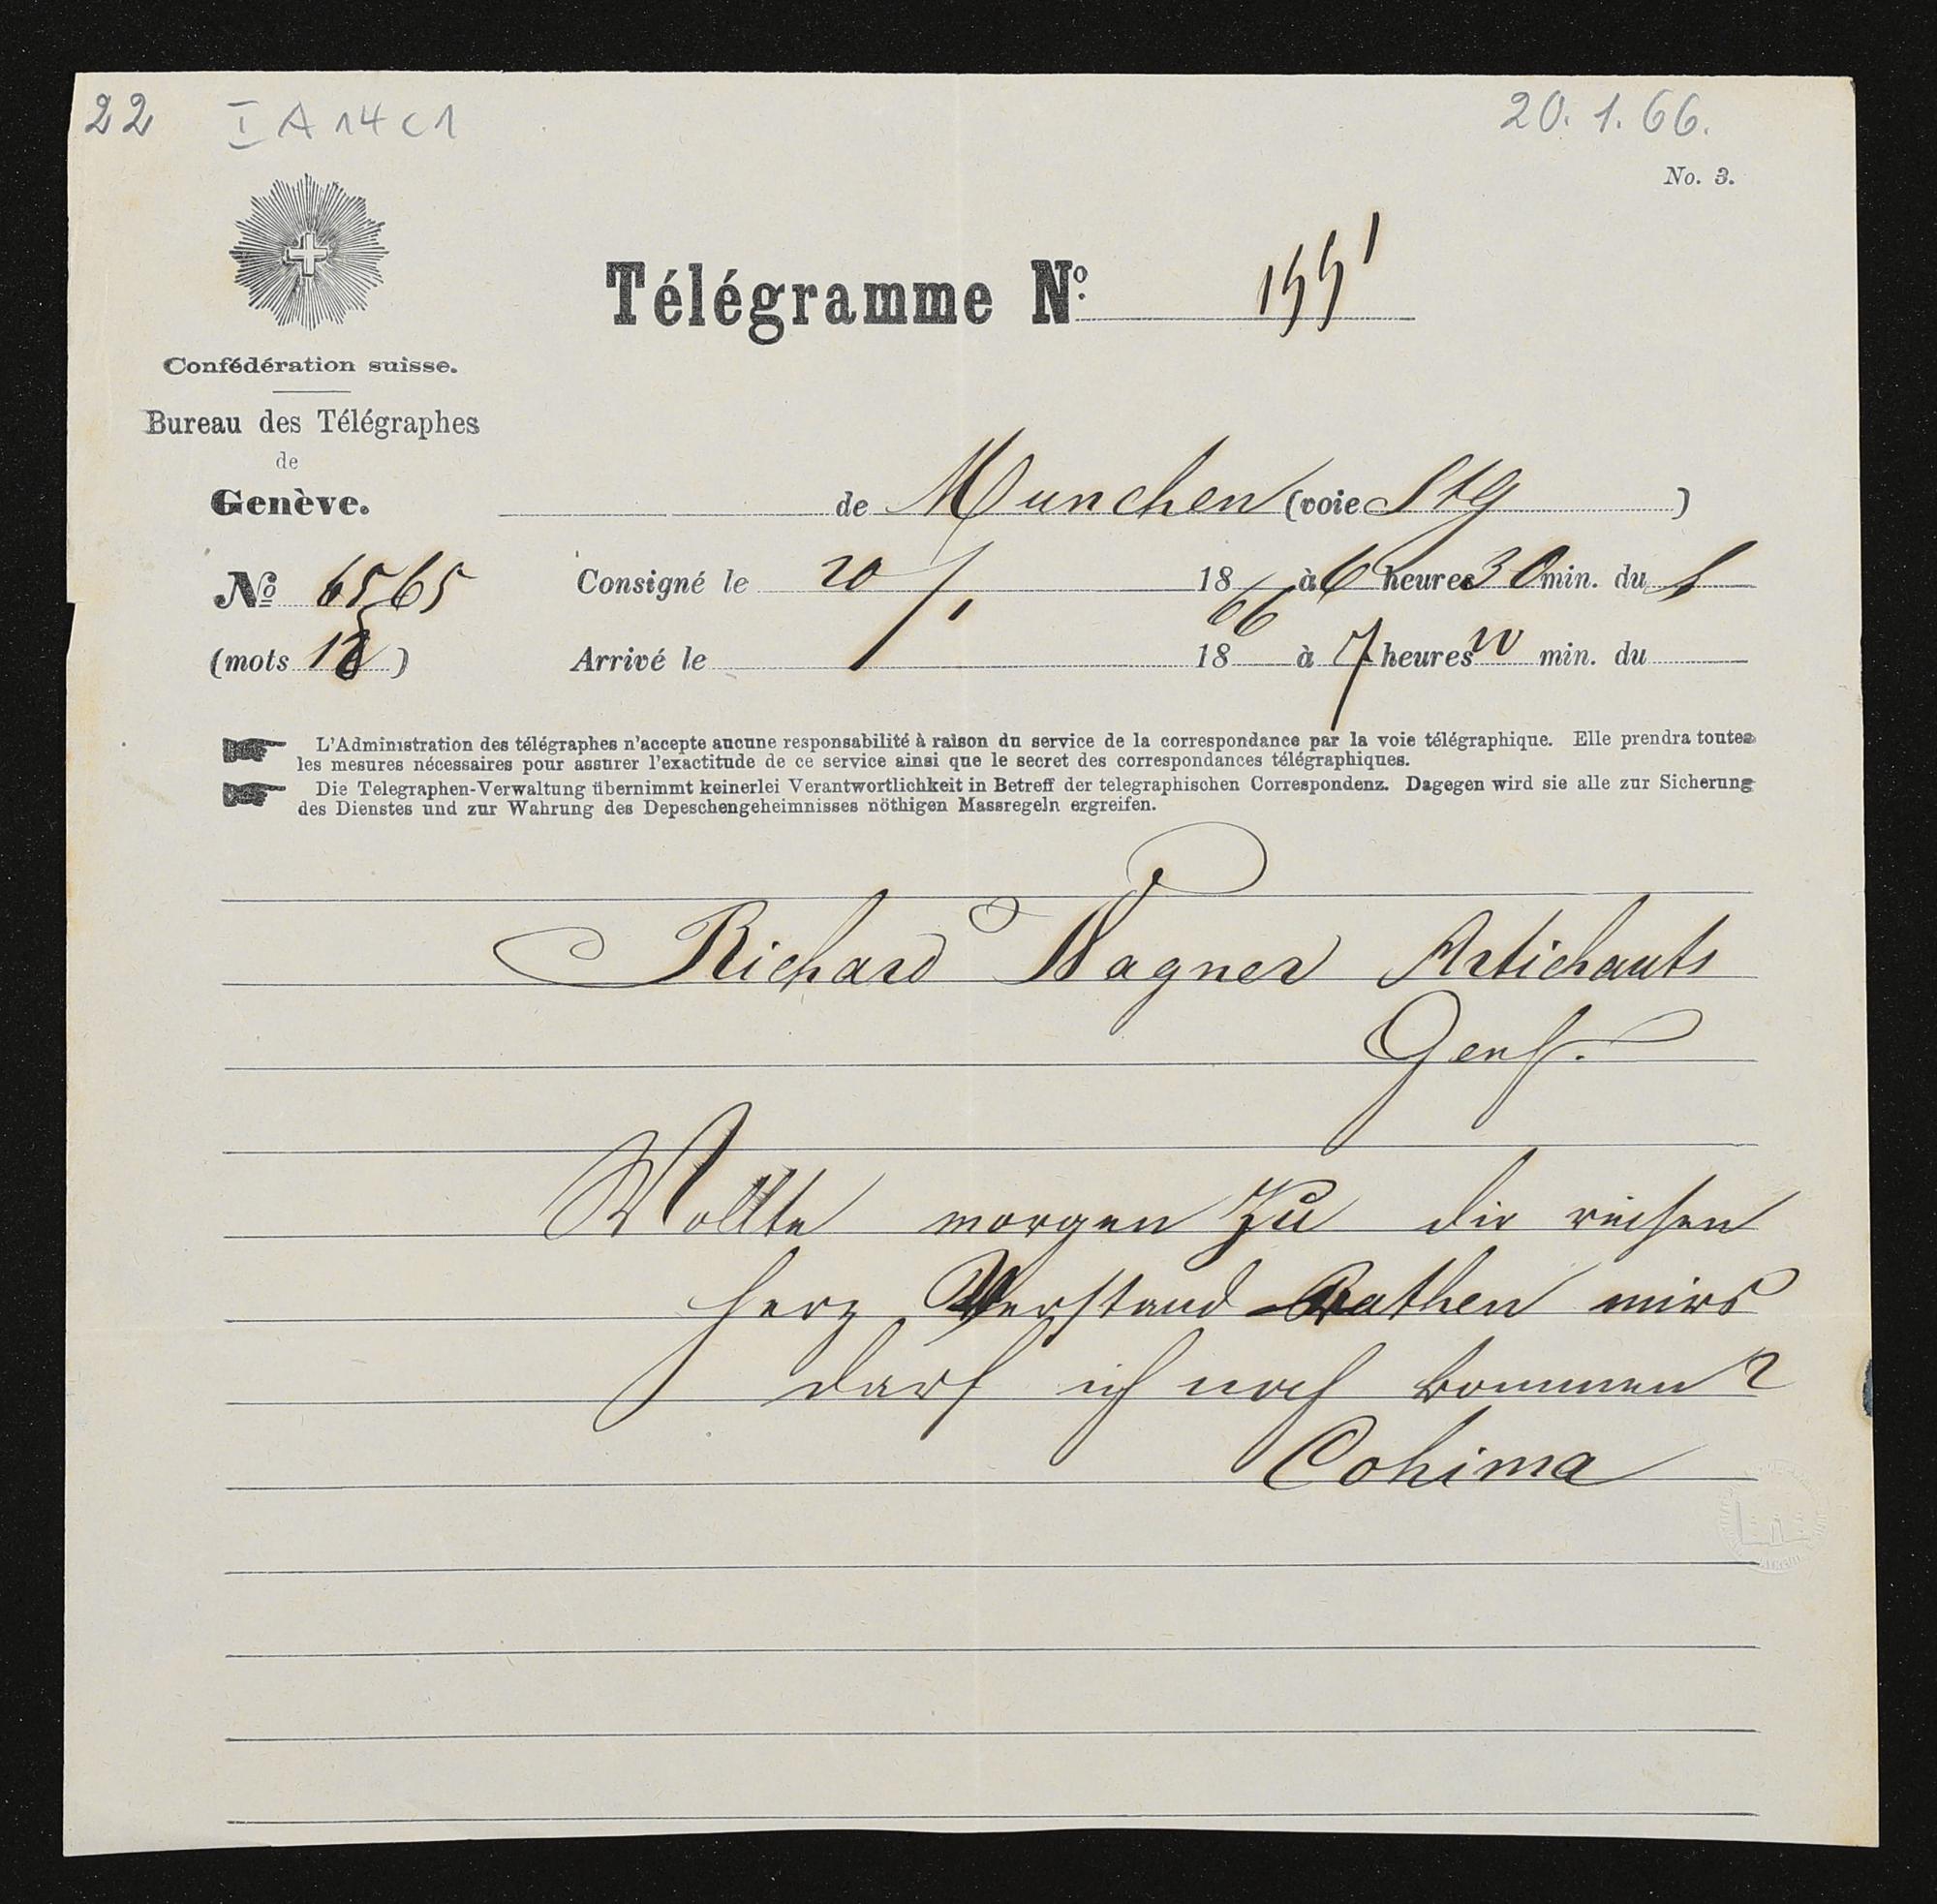 22 I A 14 C 1
20. 1. 66.
No. 3.
Télégramme No. 1551
Confédération suisse.
Bureau des Télégraphes
de
Genève.
de Munchen (voie Stg)
No 6565 Consigné le 20/1. 1866 à 6 heures 30 min. du s
(mots ) Arrivé le 18 à 7 heures min. du
L'Administration des télégraphes n'accepte aucune responsabilité à raison du service de la correspondance par la voie télégraphique. Elle prendra toutes
les mesures nécessaires pour assurer l'exactitude de ce service ainsi que le secret des correspondances télégraphiques.
Die Telegraphen-Verwaltung übernimmt keinerlei Verantwortlichkeit in Betreff der telegraphischen Correspondenz. Dagegen wird sie alle zur Sicherung
des Dienstes und zur Wahrung des Depeschengeheimnisses nöthigen Massregeln ergreifen.
Richard Wagner Artichauts
Genf.
Wollte morgen zu dir reisen
herz Verstand Rathen mirs
darf ich noch kommen?
Cohima